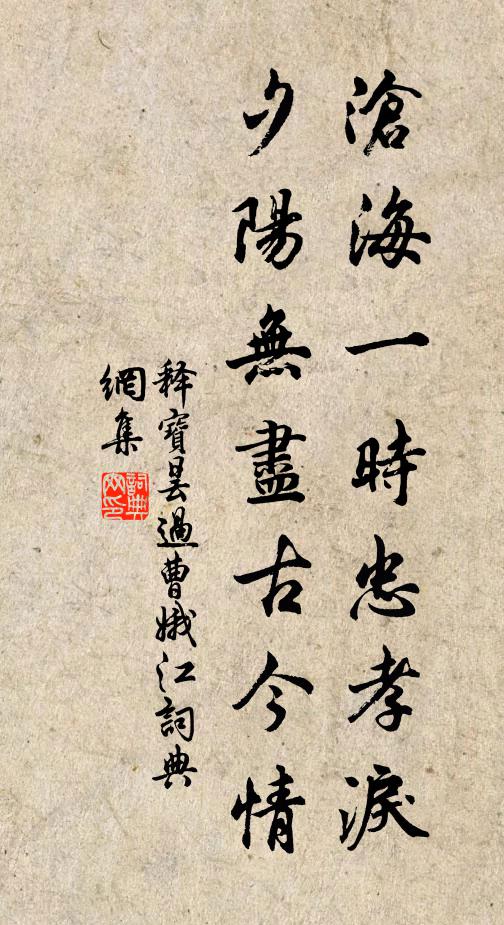 滄海一時忠孝淚
夕陽無盡古今情
释寶曇過曹娥江詞典
網集
詞典
网印